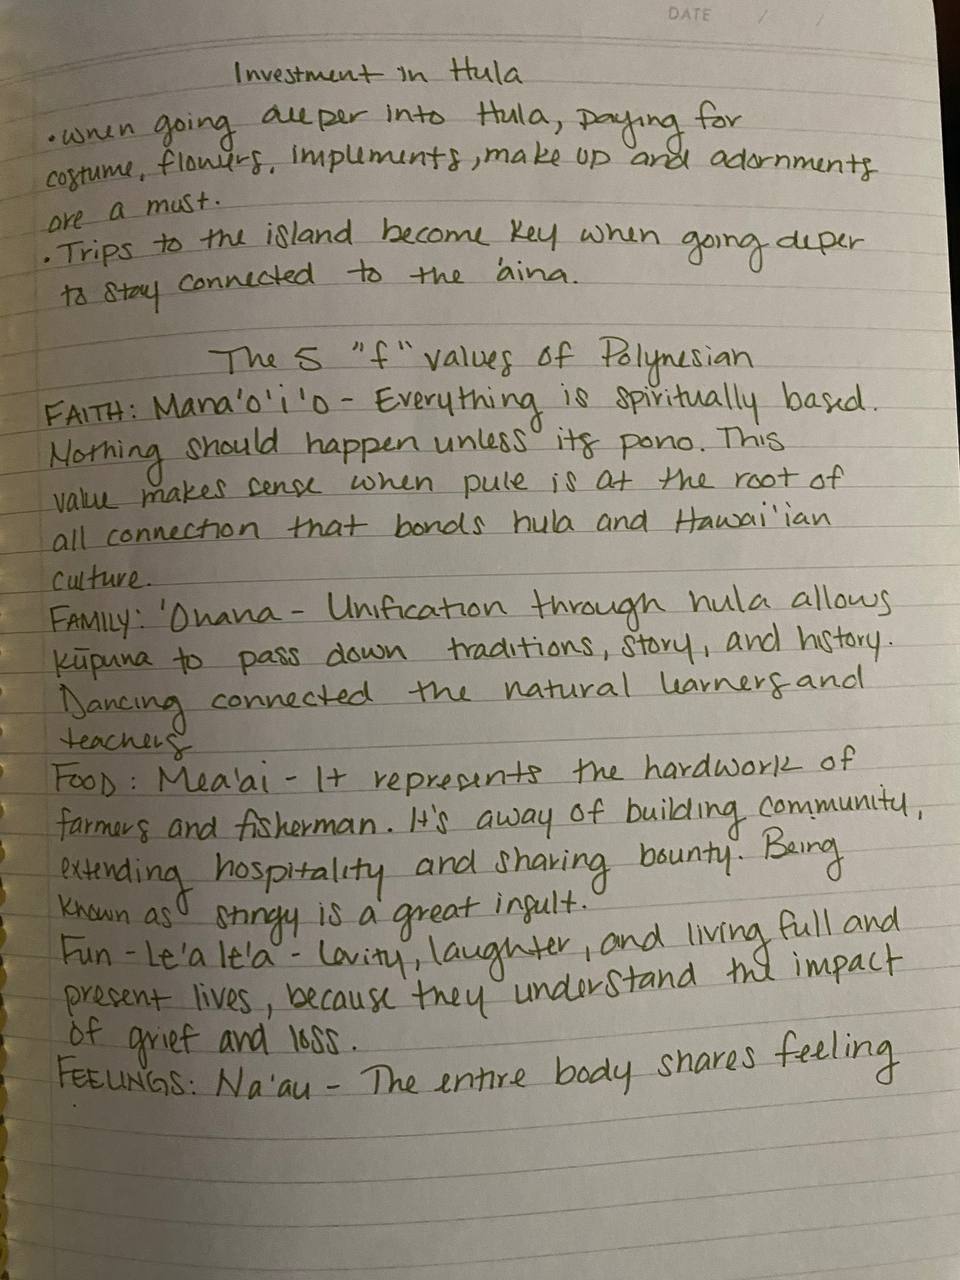 DATE / /
Investment in Hula
• when going deeper into Hula, paying for
costume, flowers, implements, make up and adornments
are a must.
• Trips to the island become key when going deper
to stay connected to the 'aina.
The 5 "f" values of Polynesian
FAITH: Mana'o'i'o - Everything is spiritually based.
Nothing should happen unless its pono. This
value makes sense when pule is at the root of
all connection that bonds hula and Hawai'ian
culture.
FAMILY: 'Ohana - Unification through hula allows
kūpuna to pass down traditions, story, and history.
Dancing connected the natural learners and
teachers
FOOD: Mea'ai - It represents the hardwork of
farmers and fisherman. It's away of building community,
extending hospitality and sharing bounty. Being
known as stingy is a great insult.
Fun - Le'a le'a - Levity, laughter, and living full and
present lives, because they understand the impact
of grief and loss.
FEELINGS: Na'au - The entire body shares feeling